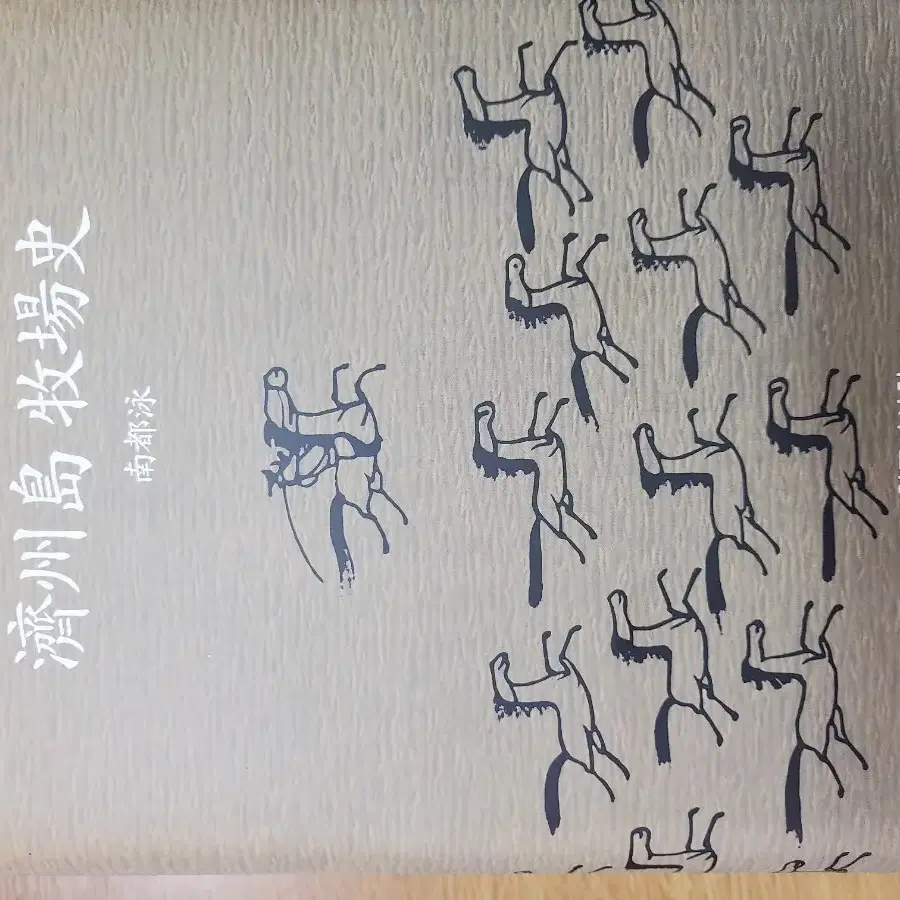 濟州島 牧場史
南都泳